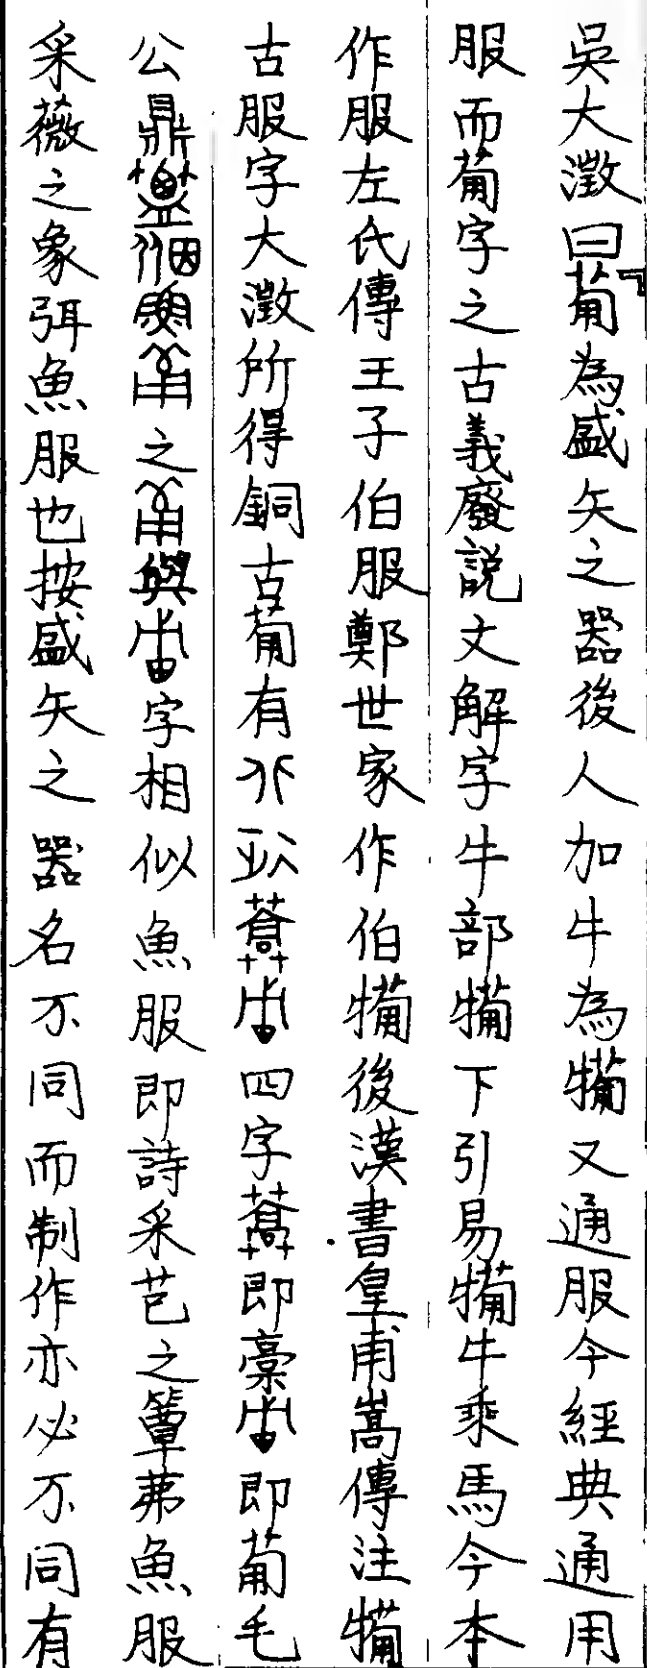 吳大澂曰葡為盛矢之器後人加牛為犕又通服今經典通用
服而葡字之古義廢說文解字牛部犕下引易犕牛乘馬今本
作服左氏傳王子伯服鄭世家作伯犕後漢書皇甫嵩傳注犕
古服字大澂所得銅古葡有四字即稾即葡毛
公鼎之與字相似魚服即詩采芑之簟茀魚服
采薇之象弭魚服也按盛矢之器名不同而制作亦必不同有